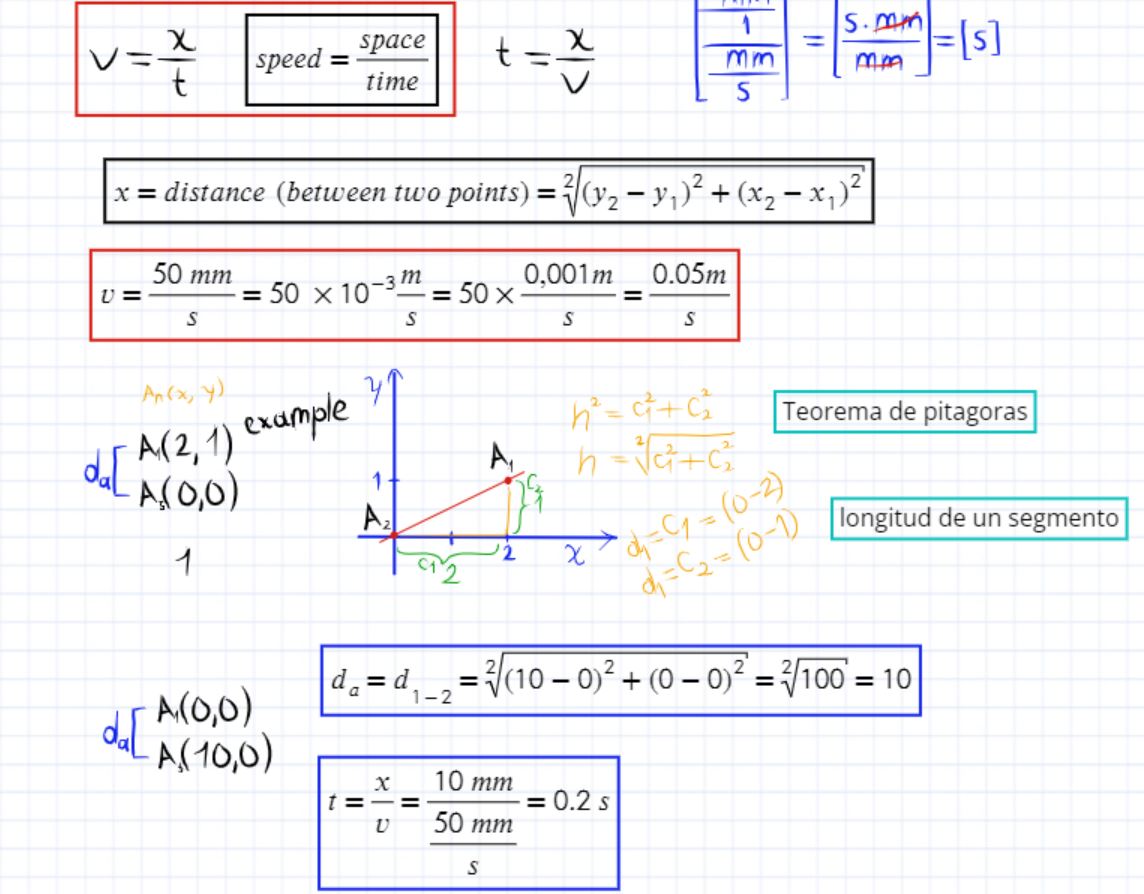 v = x/t
speed = space/time
t = x/v
[mm/1 / mm/s] = [s · mm/mm] = [s]
x = distance (between two points) = ²√((y₂ − y₁)² + (x₂ − x₁)²)
v = 50 mm/s = 50 ×10⁻³ m/s = 50 × 0,001m/s = 0.05m/s
Aₙ(x, y)
example
dₐ[ A₁(2,1)
A₂(0,0)
1
y
1
A₁
A₂
C₂ 1
C₁ 2
2
x
h² = c₁² + c₂²
h = ²√(c₁² + c₂²)
Teorema de pitagoras
d₁ = C₁ = (0-2)
d₁ = C₂ = (0-1)
longitud de un segmento
dₐ = d₁₋₂ = ²√((10 − 0)² + (0 − 0)²) = ²√100 = 10
dₐ[ A₁(0,0)
A₂(10,0)
t = x/v = 10 mm / (50 mm/s) = 0.2 s